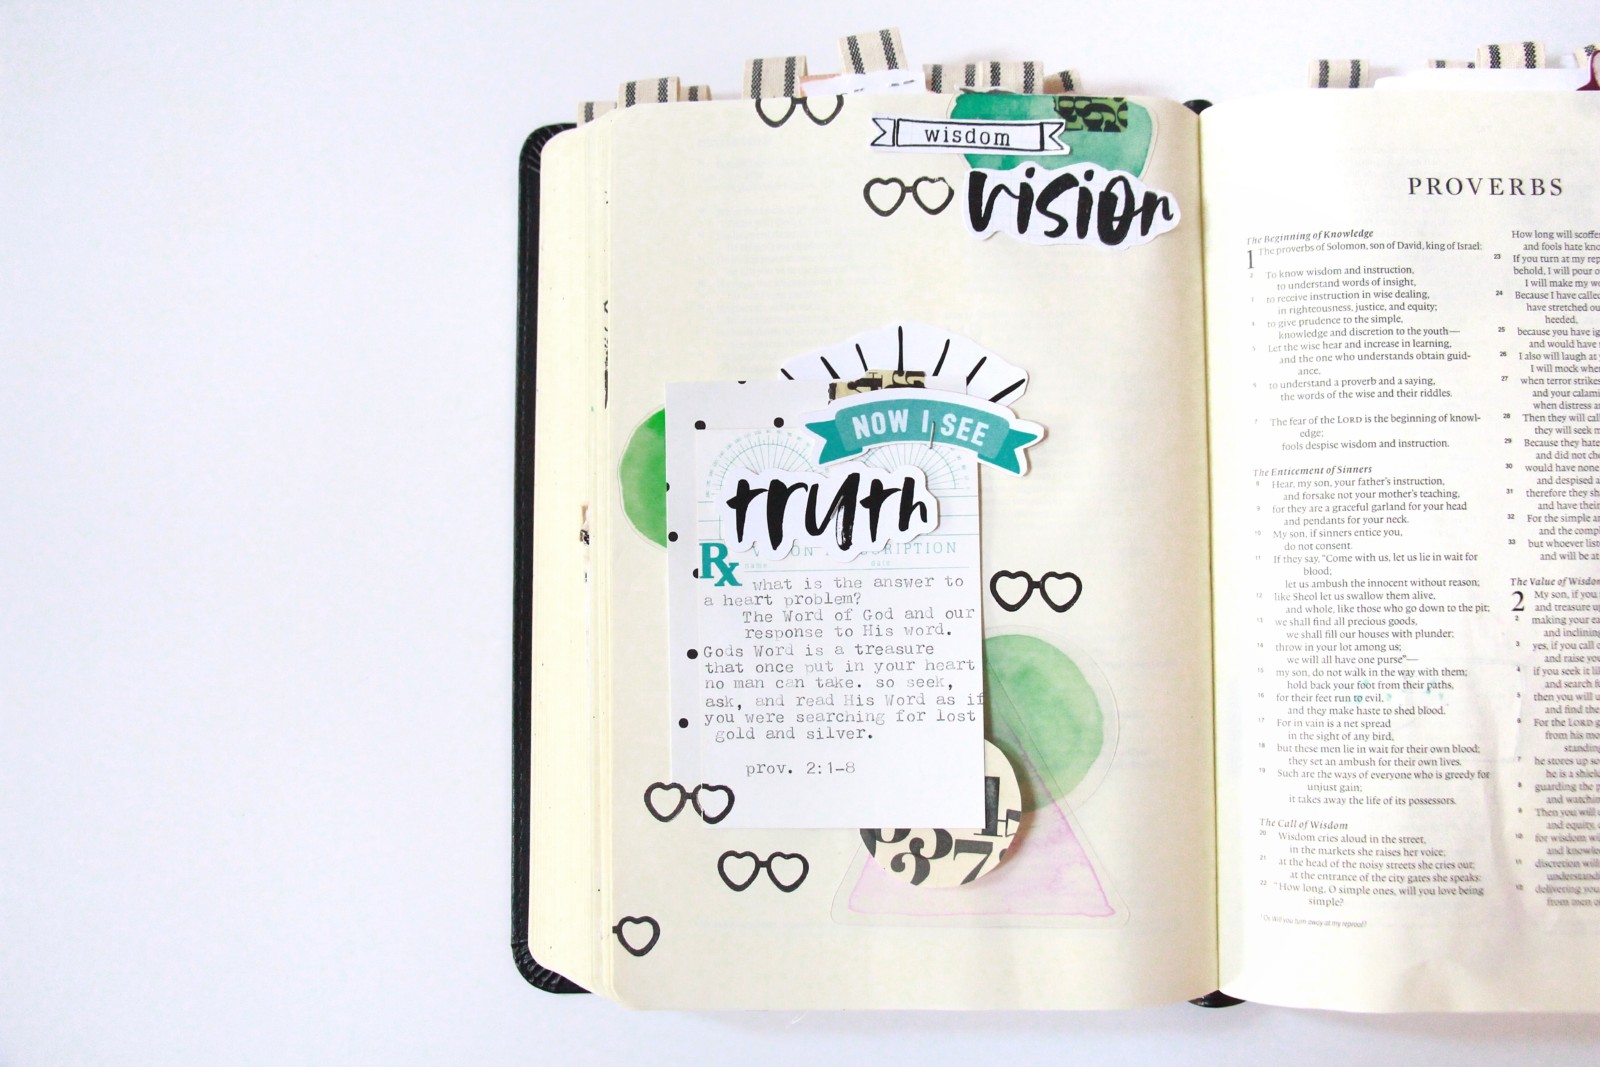 wisdom
vision
NOW I SEE
truth
Rx
PTION
name
date
what is the answer to
a heart problem?
The Word of God and our
response to His word.
Gods Word is a treasure
that once put in your heart
no man can take. so seek,
ask, and read His Word as if
you were searching for lost
gold and silver.
prov. 2:1-8
37
PROVERBS
The Beginning of Knowledge
1 The proverbs of Solomon, son of David, king of Israel:
2 To know wisdom and instruction,
to understand words of insight,
3 to receive instruction in wise dealing,
in righteousness, justice, and equity;
4 to give prudence to the simple,
knowledge and discretion to the youth—
5 Let the wise hear and increase in learning,
and the one who understands obtain guid-
ance,
6 to understand a proverb and a saying,
the words of the wise and their riddles.
7 The fear of the LORD is the beginning of knowl-
edge;
fools despise wisdom and instruction.
The Enticement of Sinners
8 Hear, my son, your father's instruction,
and forsake not your mother's teaching,
9 for they are a graceful garland for your head
and pendants for your neck.
10 My son, if sinners entice you,
do not consent.
11 If they say, "Come with us, let us lie in wait for
blood;
let us ambush the innocent without reason;
12 like Sheol let us swallow them alive,
and whole, like those who go down to the pit;
13 we shall find all precious goods,
we shall fill our houses with plunder;
14 throw in your lot among us;
we will all have one purse"—
15 my son, do not walk in the way with them;
hold back your foot from their paths,
16 for their feet run to evil,
and they make haste to shed blood.
17 For in vain is a net spread
in the sight of any bird,
18 but these men lie in wait for their own blood;
they set an ambush for their own lives.
19 Such are the ways of everyone who is greedy for
unjust gain;
it takes away the life of its possessors.
The Call of Wisdom
20 Wisdom cries aloud in the street,
in the markets she raises her voice;
21 at the head of the noisy streets she cries out;
at the entrance of the city gates she speaks:
22 "How long, O simple ones, will you love being
simple?
Or Will you turn away at my reproof?
How long will
and fools hate
23 If you turn at my
behold, I will pour
I will make my
24 Because I have
have stretched
heeded,
25 because you have
and would have
26 I also will laugh at
I will mock
27 when terror
and your
when distress
28 Then they will
they will seek
29 Because they
and did not
30 would have none
and despised
31 therefore they
and have their
32 For the simple
and the
33 but whoever
and will be
The Value of
2 My son, if you
and treasure
2 making your
and
3 yes, if you call
and raise
4 if you seek it
and search
5 then you will
and find the
6 For the LORD
from his
7 he stores up
he is a
8 guarding the
and
9 Then you will
and equity,
10 for wisdom
and
11 discretion will
12 delivering you
from men